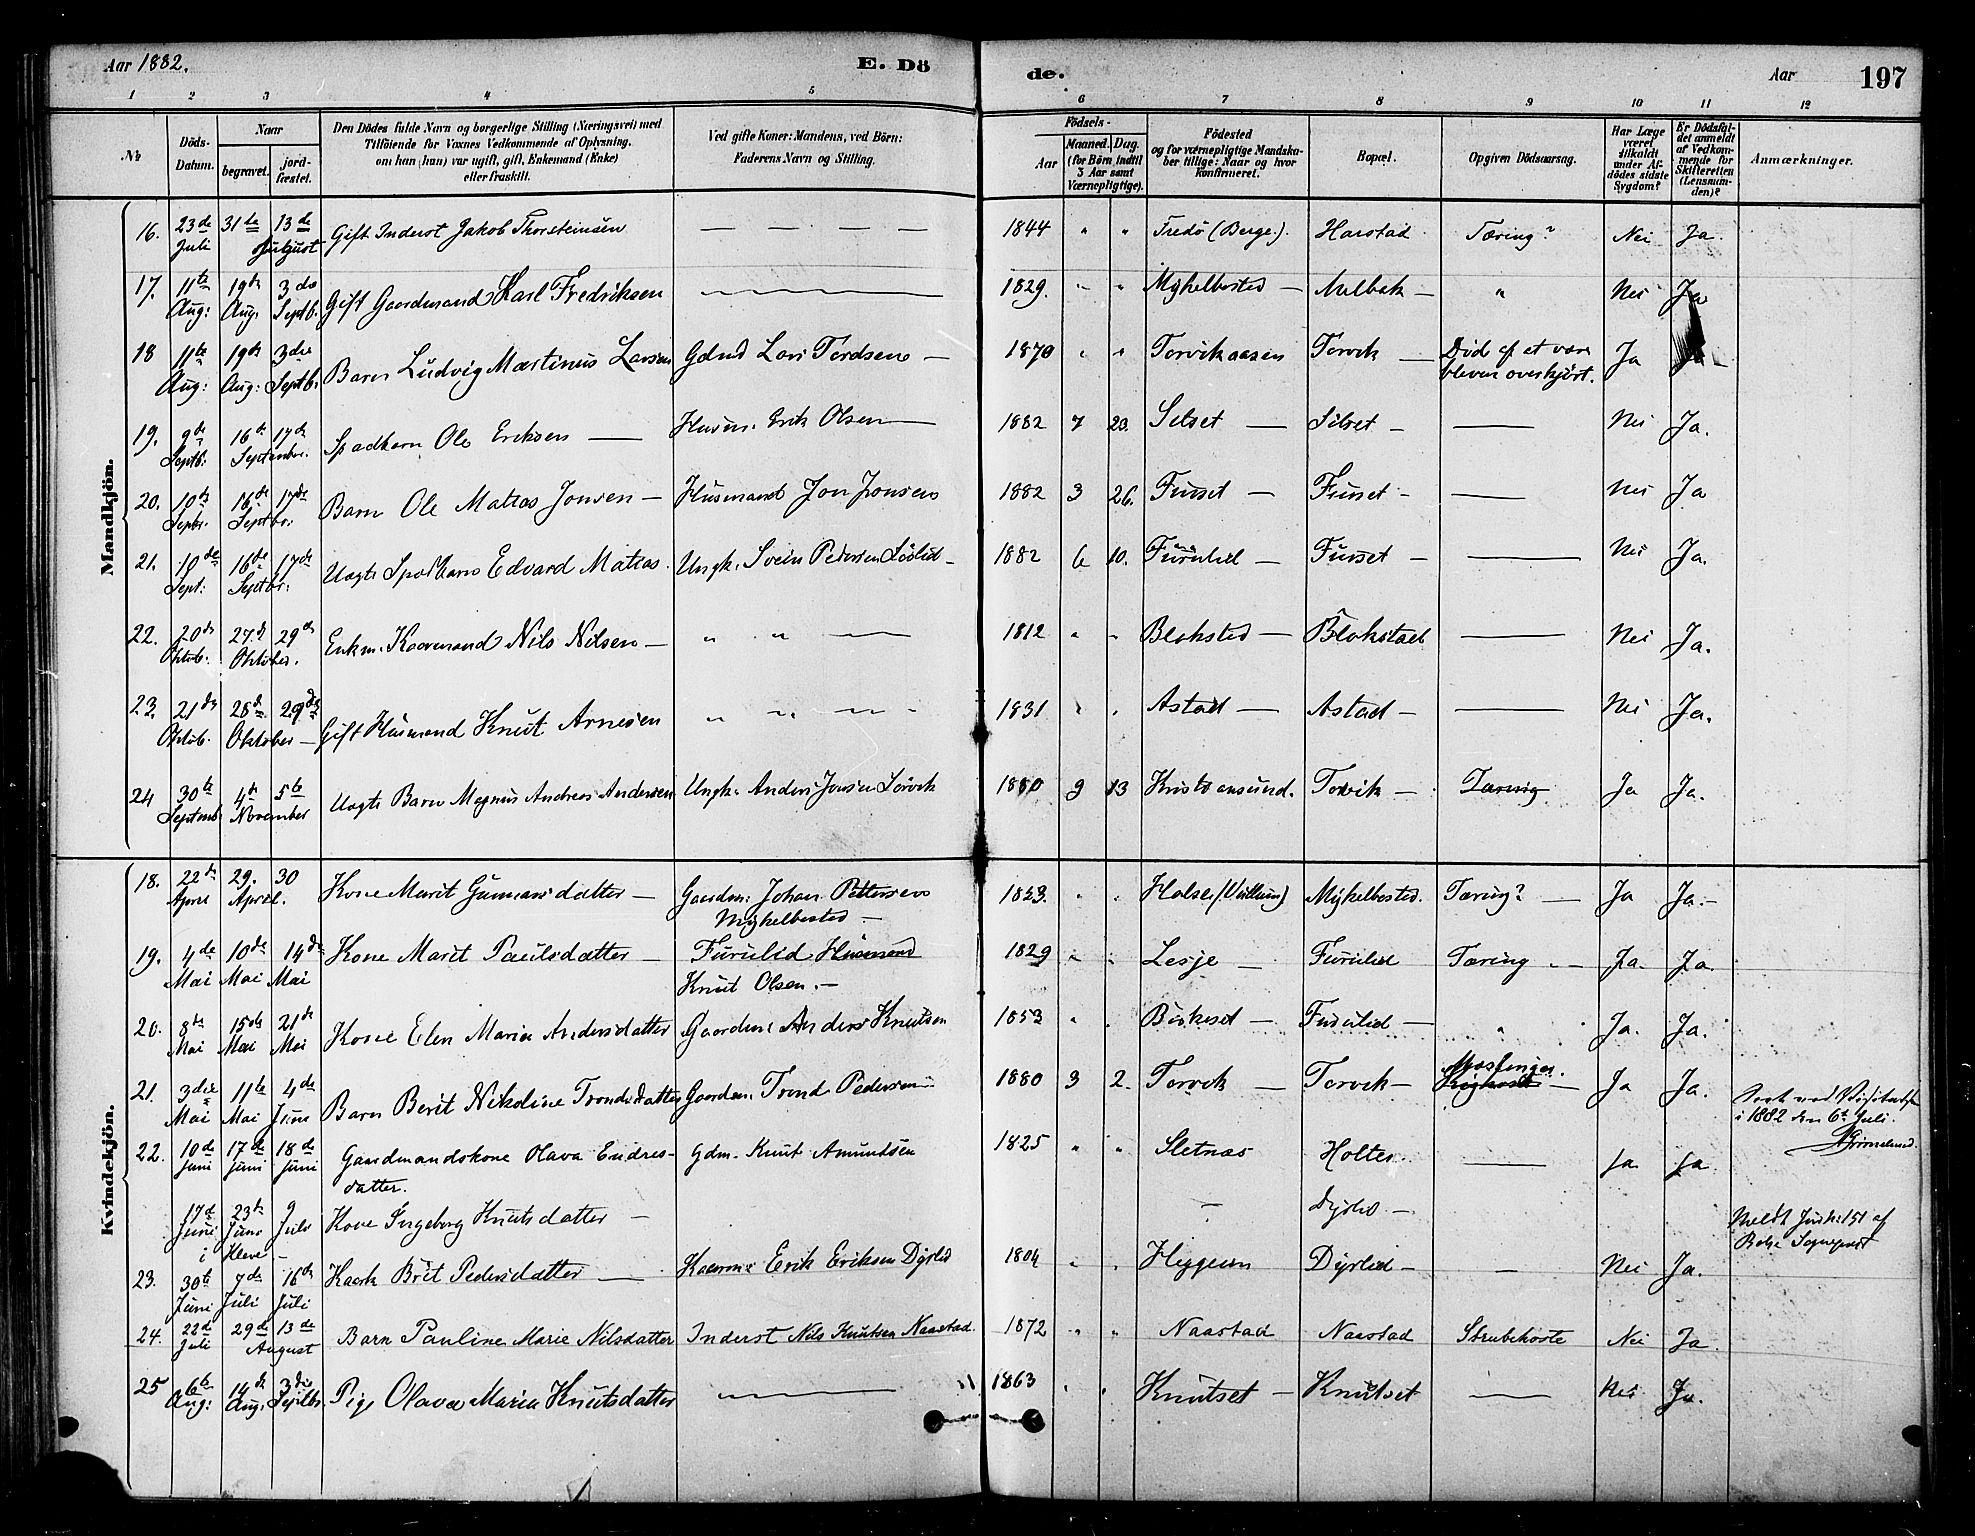 Aar 1882.
E. Dö
de.
Aar
197
1 2 3 4 5 6 7 8 9 10 11 12
№
Döds-Datum.
Naar
begravet.
jord-fæstet.
Den Dödes fulde Navn og borgerlige Stilling (Næringsvei) med
Tilföiende for Voxnes Vedkommende af Oplysning,
om han (hun) var ugift, gift, Enkemand (Enke)
eller fraskilt.
Ved gifte Koner: Mandens, ved Börn:
Faderens Navn og Stilling.
Födsels-
Aar
Maaned. Dag.
(for Börn indtil
3 Aar samt
Værnepligtige).
Födested
og for værnepligtige Mandska-
ber tillige: Naar og hvor
konfirmeret.
Bopæl.
Opgiven Dödsaarsag.
Har Læge
været
tilkaldt
under Af-
dödes sidste
Sygdom?
Er Dödsfal-
det anmeldt
af Vedkom-
mende for
Skifteretten
(Lensman-
den)?
Anmærkninger.
Mandkjön.
16. 23de Juli 31te Juli 13de August Gift Inderst Jakob Thorsteinsen — — — — 1844 " " Fredö (Berge). Harstad Tæring? Nei Ja.
17. 11te Aug: 19de Aug. 3die Septb. Gift Gaardmand Karl Fredriksen — 1829. " " Myhelbostad — Melbak — " Nei Ja
18 11te Aug: 19de Aug: 3die Septb. Barn Ludvig Martinus Larsen Gdmd Lars Tordsen — 1870 " " Torvikaasen Torvik — Död af at være
bleven overkjört. Ja Ja
19. 9de Septb: 16de 17de September. Spædbarn Ole Eriksen — Husm. Erik Olsen — 1882 7 23. Silset — Silset — — Nei Ja.
20. 10de Septbr. 16de 17de Septbr: Barn Ole Matias Jonsen — Husmand Jon Jonsen 1882 3 26. Furset — Furset — — Nei Ja
21. 10de Sept: 16de 17de Septbr: Uægte Spædbarn Edvard Matias. Ungk. Svein Pedersen 1882 6 10. Furulid — Furset — — Nei Ja.
22. 20de Oktob. 27de 29de Oktober. Enkm. Kaarmand Nils Nilsen — " " — 1812 " " Blakstad — Blakstad — Nei Ja.
23. 21de Oktob. 28de 29de Oktober — Gift Husmand Knut Arnesen " " " " 1831 " " Astad — Astad — — Nei Ja.
24 30te Septemb 4de 5te November Uægte Barn Magnus Andreas Andersen Ungk. Anders Jonsen 1880 9 13 Kristiansund. Torvik — Tæring Ja Ja.
Kvindekjön.
18. 22de April 29. 30 April. Kone Marit Gunnarsdatter — Gaardm: Johan Pettersen
Myhelbostad — 1823. " " Halse Myhelbostad. Tæring? — Ja Ja.—
19. 4de Mai 10de Mai 14de Mai Kone Marit Paulsdatter — Furulid Husmand
Knut Olsen. — 1829 " " Lesje — Furulid Tæring — Ja. Ja.
20. 8de Mai 15de Mai 21de Mai Kone Elen Maria Andersdatter Gaardm: Anders Knutsen 1853 " " Birkeset — Furulid — " Ja. Ja.
21. 3die Mai 11te Mai 4de Juni Barn Berit Nikoline Trondsdatter Gaardm. Trond Pedersen 1880 3 2. Torvik — Torvik — Mæslinger. Kighoste — Ja Ja.
i 1882 den 6te Juli.
22. 10de Juni 17de Juni 18de Juni Gaardmandskone Olava Endres-
datter. Gdm. Knut Amundsen 1825 " " Sletnæs Holten — Ja Ja
17de Juni 23de Juni 9 Juli Kone Ingeborg Knutsdatter —
i Kleve — — Dyrlid — Meldt
23. 30te Juni 7de Juli 16de Juli Kaark. Brit Pedersdatter — Kaarm: Erik Eriksen Dyrlid 1804 " " Heggem Dyrlid — — Nei Ja.
24. 22de Juli 29de 13de August Barn Pauline Marie Nilsdatter Inderst Nils Knutsen Naastad. 1872 " " Naastad Naastad Strubehoste Nei Ja.
25 6te Aug: 14de Aug. 3die Septbr. Pige Olava Maria Knutsdatter — " 1863 " " Knutset — Knutset — Nei Ja.